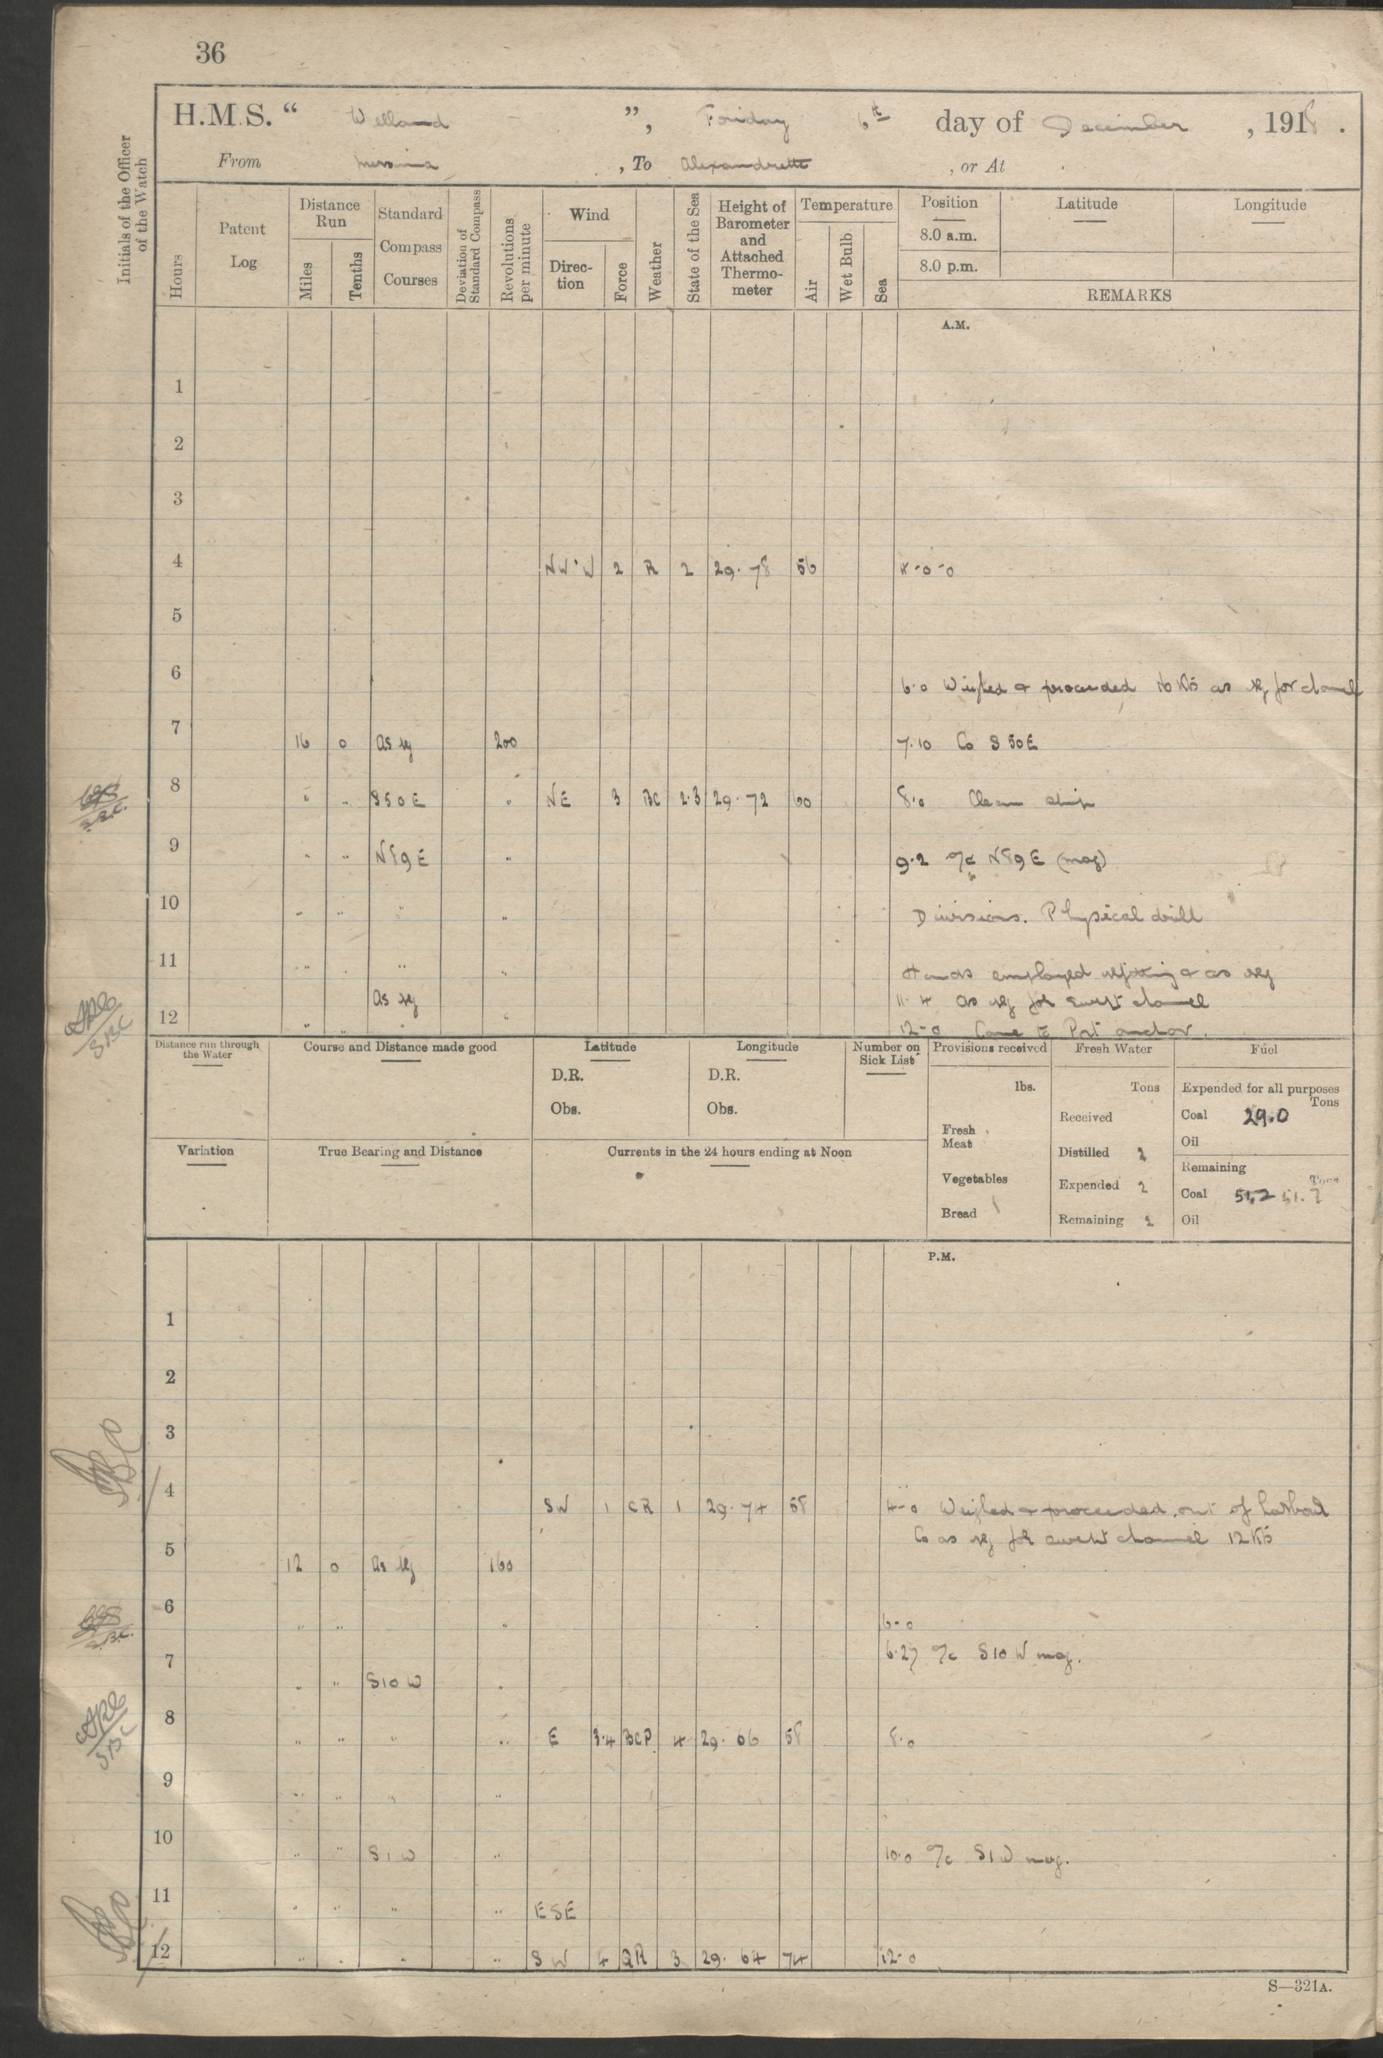 36
H.M.S. “ Welland ”, Friday 6th day of December , 1918 .
From Messina , To Alexandrette , or At
Initials of the Officer of the Watch
Hours
Patent Log
Distance Run
Miles
Tenths
Standard Compass Courses
Deviation of Standard Compass
Revolutions per minute
Wind
Direc-tion
Force
Weather
State of the Sea
Height of Barometer and Attached Thermo-meter
Temperature
Air
Wet Bulb
Sea
Position
8.0 a.m.
8.0 p.m.
Latitude
Longitude
REMARKS
A.M.
1
2
3
4 NW'W 2 R 2 29.78 56 4-0-0
5
6 6.0 Weighed & proceeded 16 Kts as req for channel
7 16 0 As req 200 7.10 Co S 50E
8 " " S50E " NE 3 BC 2.3 29.72 60 8.0 Clean ship
9 " " N89E " 9.2 a/c N89E (mag)
10 " " " " Divisions. Physical drill
11 " " " " Hands employed refitting & as req
As req 11.4 As req for swept channel
12 " " " " 12-0 Came to Port anchor.
Distance run through the Water
Course and Distance made good
Latitude
Longitude
Number on Sick List
Provisions received
Fresh Water
Fuel
D.R. D.R.
Obs. Obs.
lbs.
Tons
Expended for all purposes
Tons
Received
Coal 29.0
Fresh Meat
Oil
Variation
True Bearing and Distance
Currents in the 24 hours ending at Noon
Distilled 2
Remaining
Tons
Vegetables
Expended 2
Coal 51.2 51.2
Bread
Remaining 2
Oil
P.M.
1
2
3
4 SW 1 CR 1 29.74 58 4-0 Weighed & proceeded out of harbour
Co as req for swept channel 12 Kts
5 12 0 As req 160
6 " " " 6-0
6.27 a/c S10W mag.
7 " " S10W "
8 " " " " E 3.4 BCP 4 29.66 58 8.0
9 " " " "
10 " " S1W " 10.0 a/c S1W mag.
11 " " " " ESE
12 " " " " SW 4 QR 3 29.64 74 12-0
S—321A.